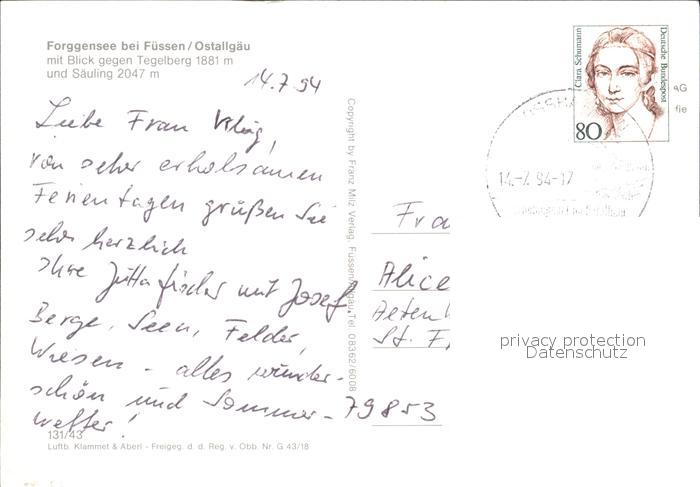 Forggensee bei Füssen/Ostallgäu
mit Blick gegen Tegelberg 1881 m
und Säuling 2047 m
14.7.94
Liebe Frau
von sehr erholsamen
Ferientagen grüßen Sie
sehr herzlich
Ihre Jutta Fischer mit Josef.
Berge, Seen, Felder,
Wiesen - alles wunder-
schön und Sommer-
wetter!
131/43
Luftb. Klammet & Aberl - Freigeg. d. d. Reg. v. Obb. Nr. G 43/18
Copyright by Franz Milz Verlag, Füssen/Allgäu, Tel. 08362/6008
Clara Schumann
Deutsche Bundespost
80
14.-7.94-17
Fra
Alice
St. F
79853
privacy protection
Datenschutz